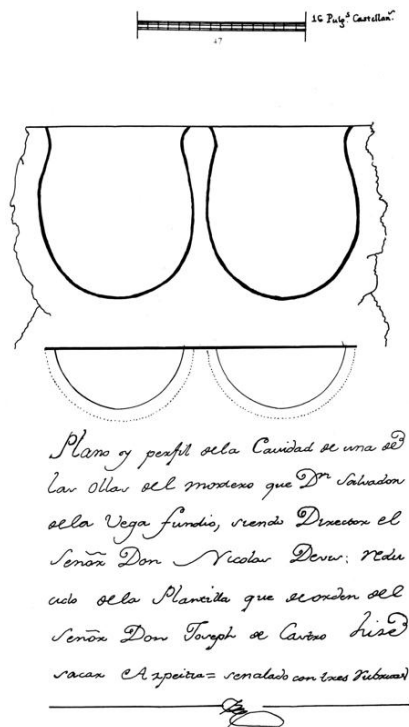 16 Pulg.s Castellan.s
47
Plano y perfil de la Cavidad de una de
las ollas del mortero que Dn Salvador
de la Vega fundio, siendo Director el
señor Don Nicolas Devis; redu
cido de la Plantilla que de orden del
señor Don Joseph de Castro hise
sacar Azpeitia = senalado con tres rubricas